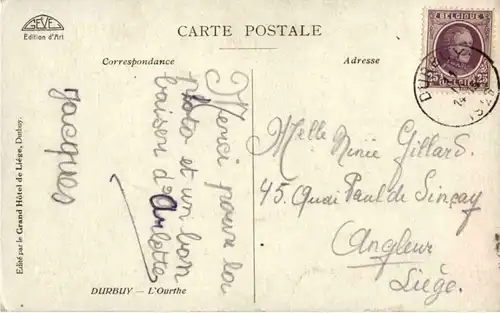 GEVE
Edition d'Art
CARTE POSTALE
Correspondance
Adresse
BELGIQUE
25
25
DURBUY
Merci pour la
photo et un bon
baiser d'Arlotte
Jacques
Melle Ninie Gillard.
45. Quai Paul de Sinçay
Angleur
Liège.
DURBUY — L'Ourthe
Edité par le Grand Hôtel de Liège, Durbuy.